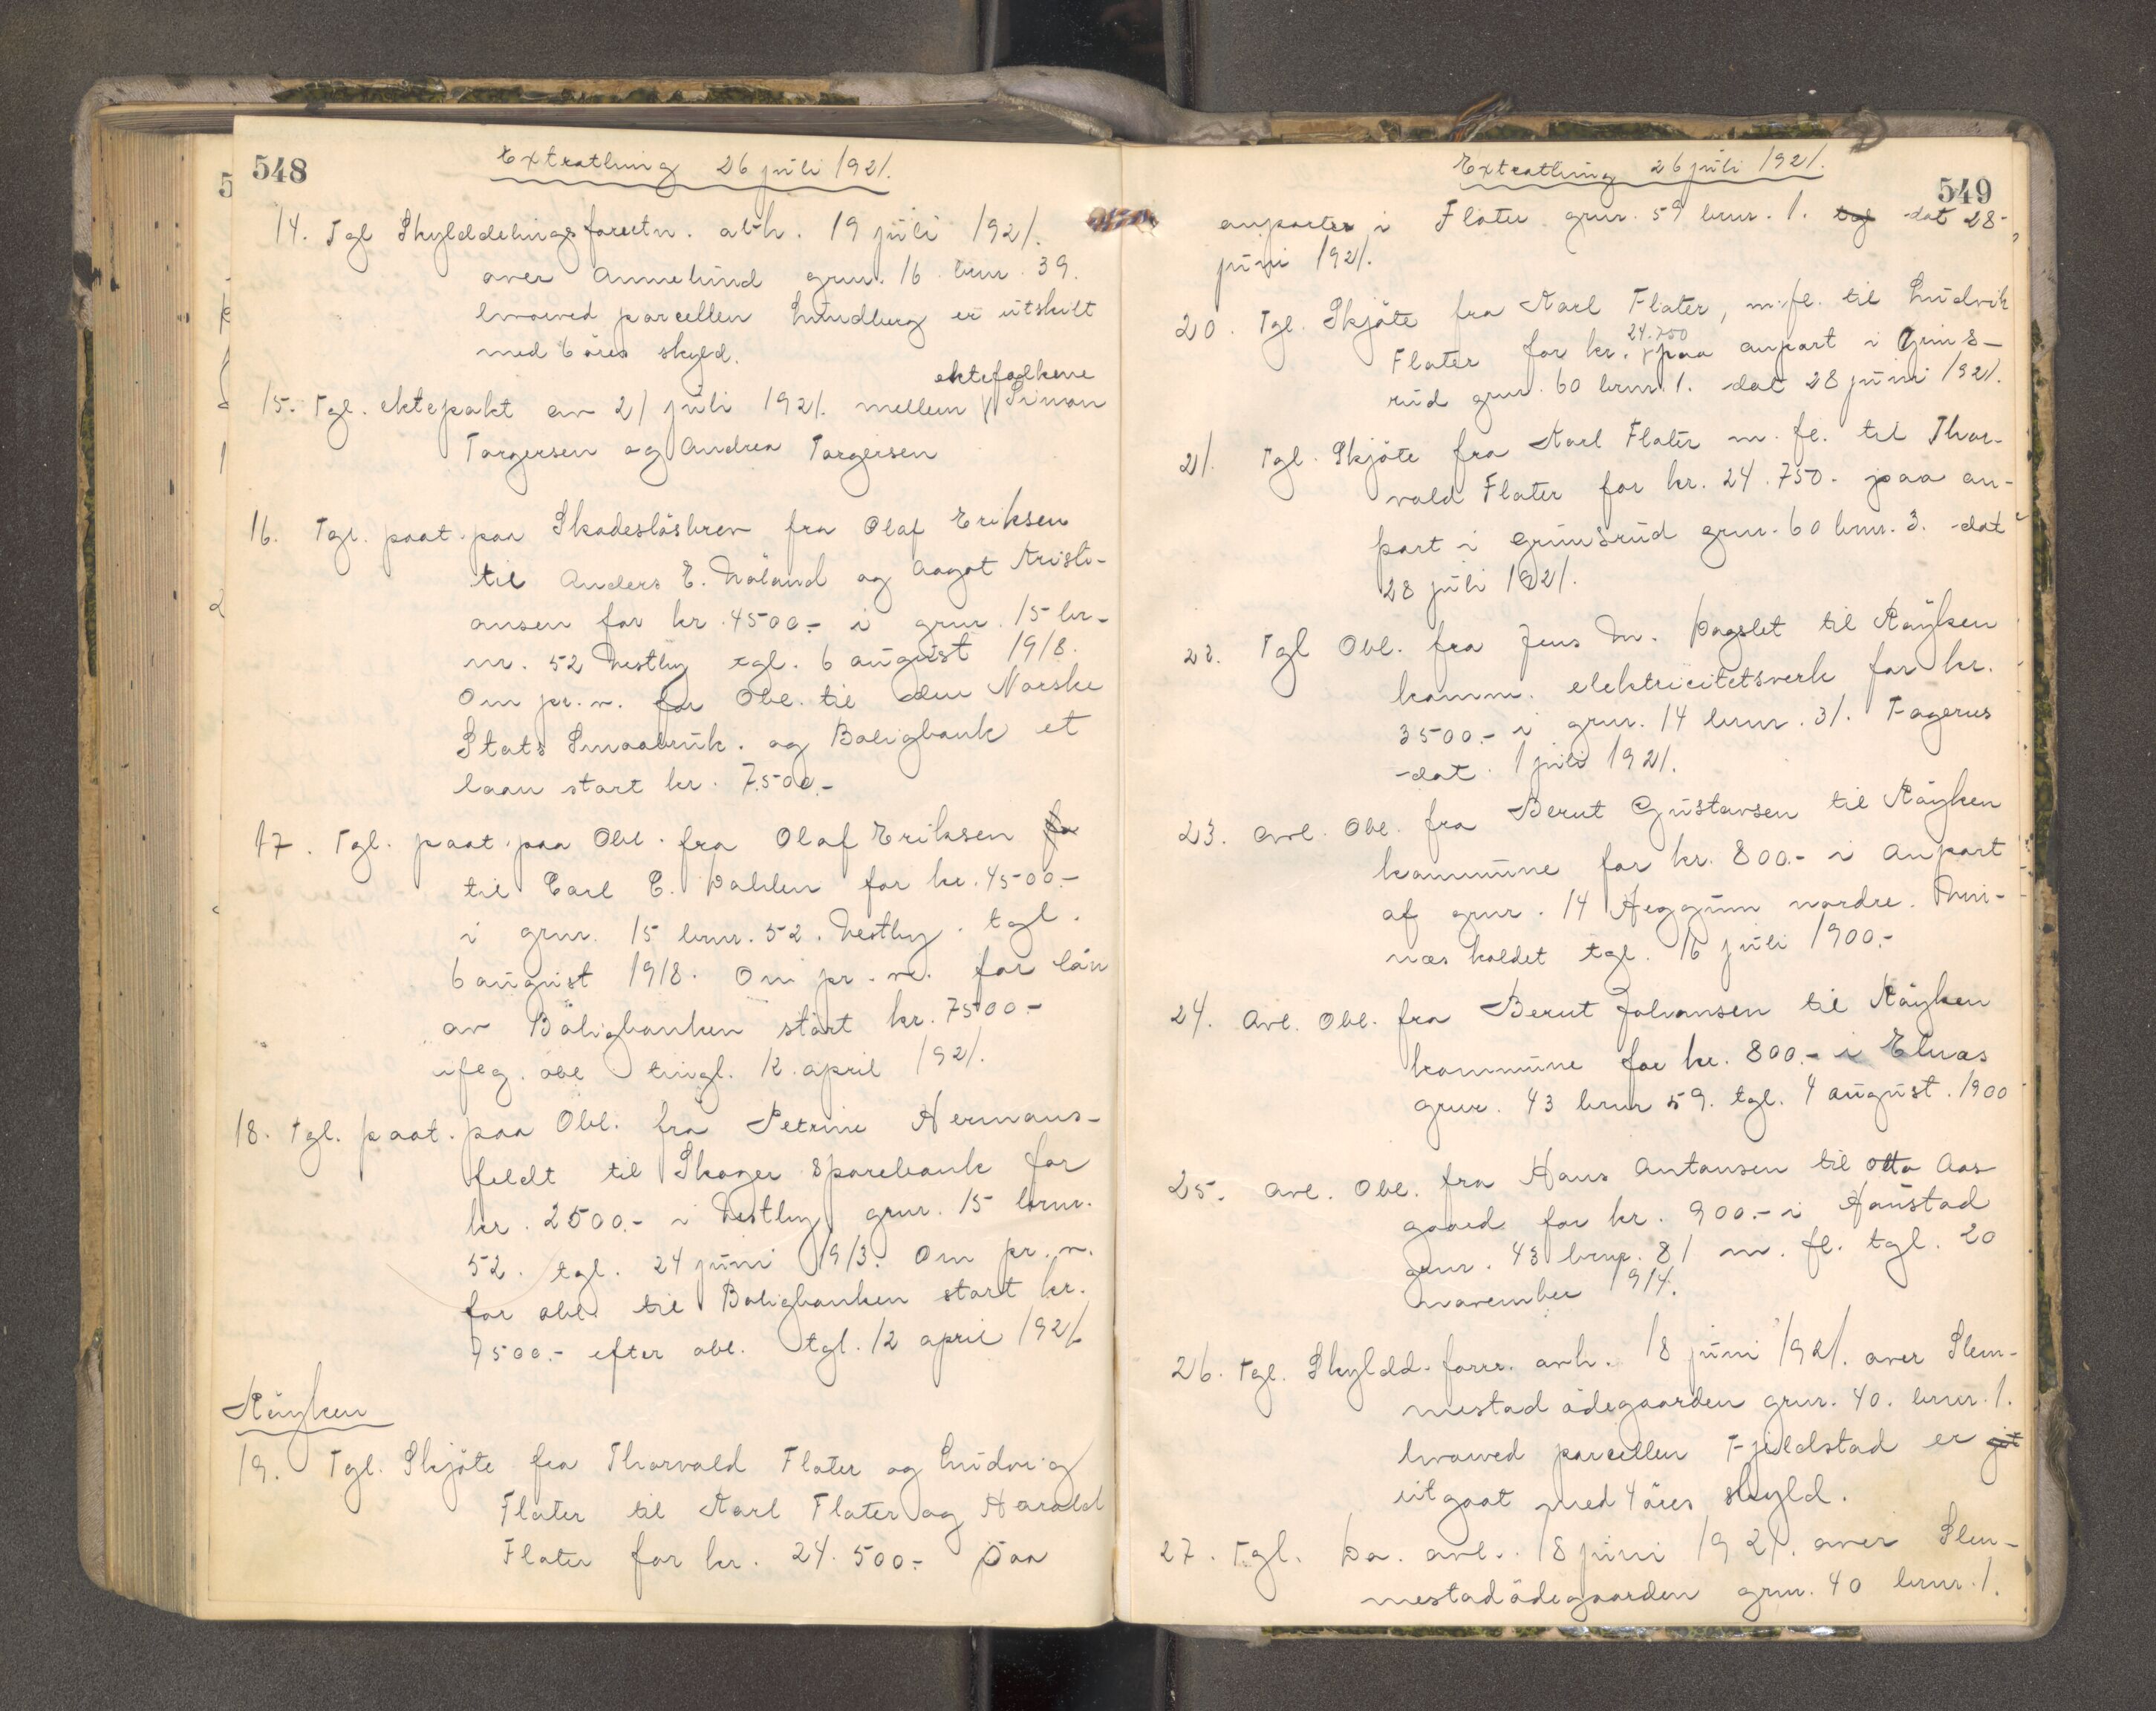 548
Extrathing 26 juli 1921.
14. Tgl Skylddelingsforretn. avh. 19 juli 1921.
over Annelund grnr. 16 brnr. 39.
hvorved parcellen Lundberg er utskilt
med 6 øres skyld.
ektefolkene
15. Tgl. ektepakt av 21 juli 1921. mellem Simon
Torgersen og Andrea Torgersen
16. Tgl. paat. paa Skadesløsbrev fra Olaf Eriksen
til Anders E. Moland og Aagot Kristi-
ansen for kr. 4500.- i grnr. 15 br-
nr. 52 Vestby tgl. 6 august 1918.
Om pr. v. for Obl. til den Norske
Stats Smaabruk. og Boligbank et
laan stort kr. 7500.-
17. Tgl. paat. paa Obl. fra Olaf Eriksen fra
til Carl E. Dahlen for kr. 4500.-
i grnr. 15 brnr. 52. Vestby. tgl.
6 august 1918. Om pr. v. for lån
av Boligbanken stort kr. 7500.-
iflg. obl tingl. 12. april 1921.
18. Tgl. paat. paa Obl. fra Petrine Hermans-
feldt til Skoger Sparebank for
kr. 2500.- i Vestby grnr. 15 brnr.
52. tgl. 24 juni 1913. Om pr. v.
for obl. til Boligbanken stort kr.
7500.- efter obl. tgl. 12 april 1921
Røyken
19. Tgl. Skjøte fra Thorvald Flater og Ludvig
Flater til Karl Flater og Harald
Flater for kr. 24.500.- paa
Extrathing 26 juli 1921.
549
anparter i Flater grnr. 59 brnr. 1. tgl dat 28-
juni 1921.
20. Tgl. Skjøte fra Karl Flater, m. fl. til Ludvik
24.750
Flater for kr. paa anpart i Grims-
rud grnr. 60 brnr. 1. dat 28 juni 1921.
21. Tgl. Skjøte fra Karl Flater m. fl. til Thor-
vald Flater for kr. 24.750- paa an-
part i Grimsrud grnr. 60 brnr. 3. dat
28 juli 1921.
22. Tgl Obl. fra Jens M. Dagslet til Røyken
komm. elektricitetsverk for kr.
3500.- i grnr. 14 brnr. 31. Fagernes
dat. 1 juli 1921.
23. Avl. Obl. fra Bernt Gustavsen til Røyken
kommune for kr. 800.- i Anpart
af grnr. 14 Heggum nordre.
koldet tgl. 16 juli 1900.-
24. Avl. Obl. fra Bernt Johansen til Røyken
kommune for kr. 800.- i Elnæs
grnr. 43 brnr 59. tgl. 4 august. 1900
25. Avl. Obl. fra Hans Antonsen til Otto Aas
gaard for kr. 900.- i Haustad
grnr. 43 brnr. 81 m. fl. tgl. 20
november 1914.
26. Tgl. Skyldd. forr. avh. 18 juni 1921. over Slem-
mestad ødegaarden grnr. 40. brnr. 1.
hvorved parcellen Fjeldstad er
utgaat med 4 øres skyld.
27. Tgl. Do. avl. 18 juni 1921. over Slem-
mestadødegaarden grnr. 40 brnr. 1.